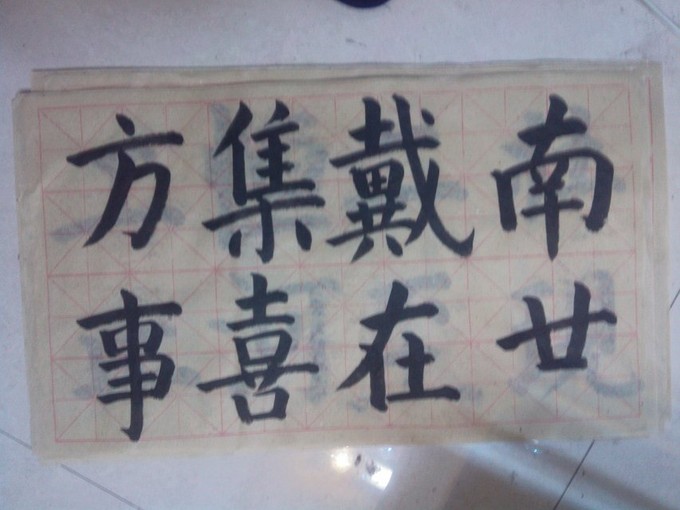 方集戴南
事喜在廿